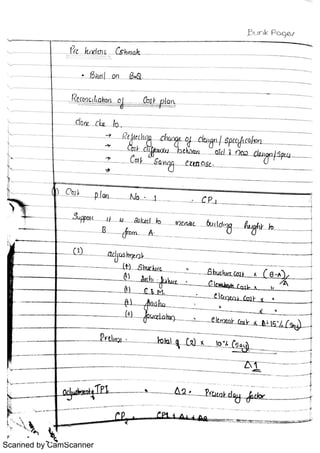 Bunk Pages
Pre tenders Estimate
• Based on BoQ.
Reconciliation of Cost plan
done due to.
→ Reflecting change of design / specification
→ Cost difference between old & new design/Specs
→ Cost Saving exercise.
→
1) Cost plan No - 1 . CP1
Suppose it is asked to increase building height to
B from A.
(1) adjustment
(+) Structure = Structure Cost x (B-A)/A
(+) = Cost x "
(+) E & M. = element Cost x "
(+) = " x "
(+) foundation = element Cost x + 15% (say)
Prelims = total of (2) x 10% (say)
Δ1
adjustment TPI = Δ2 = Present day factor
CP2 = CP1 + Δ1 + Δ2
Scanned by CamScanner